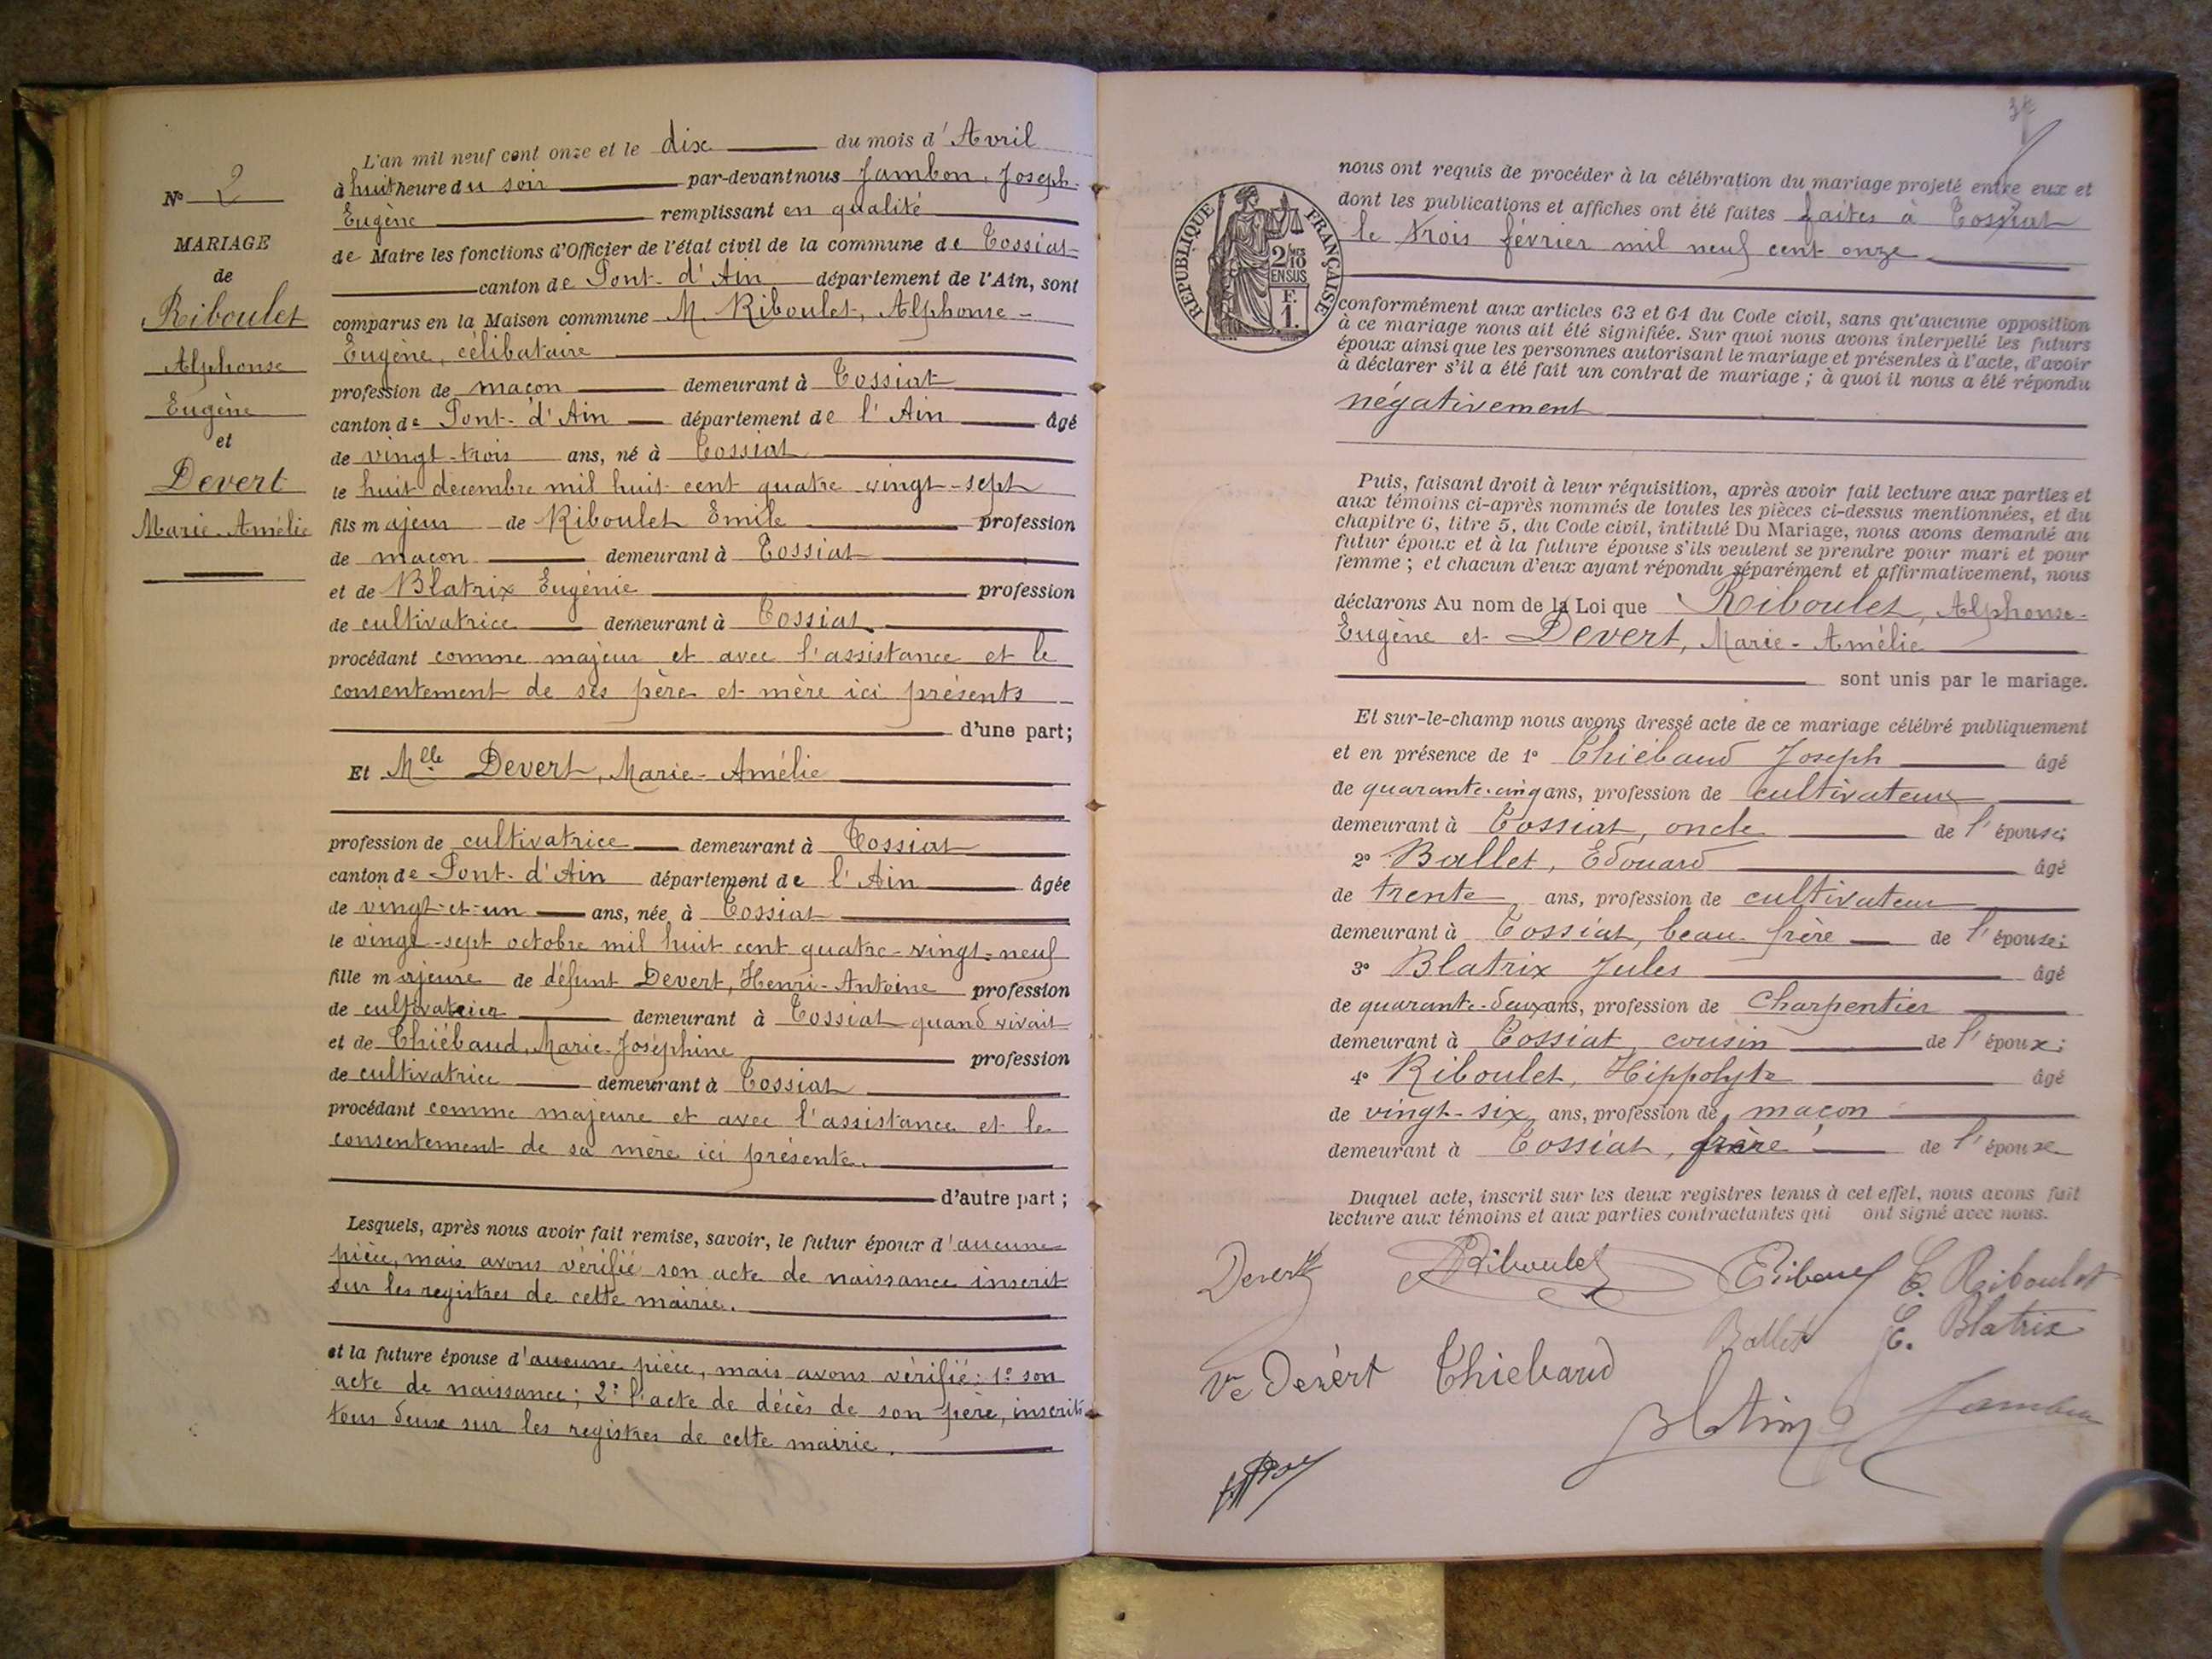 L'an mil neuf cent onze et le dix du mois d'Avril
à huit heure du soir par-devant nous Jambon, Joseph-
Eugène remplissant en qualité
de Maire les fonctions d'Officier de l'état civil de la commune de Tossiat
canton de Pont-d'Ain département de l'Ain, sont
comparus en la Maison commune M. Riboulet, Alphonse-
Eugène, célibataire
profession de maçon demeurant à Tossiat
canton de Pont-d'Ain département de l'Ain âgé
de vingt-trois ans, né à Tossiat
le huit décembre mil huit cent quatre vingt-sept
fils majeur de Riboulet Emile profession
de maçon demeurant à Tossiat
et de Blatrix Eugénie profession
de cultivatrice demeurant à Tossiat
procédant comme majeur et avec l'assistance et le
consentement de ses père et mère ici présents
d'une part;
Et Mlle Devert, Marie-Amélie
profession de cultivatrice demeurant à Tossiat
canton de Pont-d'Ain département de l'Ain âgée
de vingt-et-un ans, née à Tossiat
le vingt-sept octobre mil huit cent quatre-vingt-neuf
fille majeure de défunt Devert, Henri-Antoine profession
de demeurant à Tossiat quand vivait
et de Thiébaud, Marie-Joséphine profession
de cultivatrice demeurant à Tossiat
procédant comme majeure et avec l'assistance et le
consentement de sa mère ici présente.
d'autre part;
Lesquels, après nous avoir fait remise, savoir, le futur époux d'aucune
pièce, mais avons vérifié son acte de naissance inscrit
sur les registres de cette mairie.
et la future épouse d'aucune pièce, mais avons vérifié: 1° son
acte de naissance; 2° l'acte de décès de son père, inscrits
tous deux sur les registres de cette mairie.
N° 2
MARIAGE
de
Riboulet
Alphonse
Eugène
et
Devert
Marie-Amélie
RÉPUBLIQUE FRANÇAISE
2/10
EN SUS
F.
1.
nous ont requis de procéder à la célébration du mariage projeté entre eux et
dont les publications et affiches ont été faites faites à Tossiat
le trois février mil neuf cent onze
conformément aux articles 63 et 64 du Code civil, sans qu'aucune opposition
à ce mariage nous ait été signifiée. Sur quoi nous avons interpellé les futurs
époux ainsi que les personnes autorisant le mariage et présentes à l'acte, d'avoir
à déclarer s'il a été fait un contrat de mariage; à quoi il nous a été répondu
négativement
Puis, faisant droit à leur réquisition, après avoir fait lecture aux parties et
aux témoins ci-après nommés de toutes les pièces ci-dessus mentionnées, et du
chapitre 6, titre 5, du Code civil, intitulé Du Mariage, nous avons demandé au
futur époux et à la future épouse s'ils veulent se prendre pour mari et pour
femme; et chacun d'eux ayant répondu séparément et affirmativement, nous
déclarons Au nom de la Loi que Riboulet, Alphonse-
Eugène et Devert, Marie-Amélie
sont unis par le mariage.
Et sur-le-champ nous avons dressé acte de ce mariage célébré publiquement
et en présence de 1° Thiébaud Joseph âgé
de quarante-cinq ans, profession de cultivateur
demeurant à Tossiat, oncle de l'épouse;
2° Ballet, Edouard âgé
de trente ans, profession de cultivateur
demeurant à Tossiat, beau-frère de l'épouse;
3° Blatrix Jules âgé
de quarante-deux ans, profession de charpentier
demeurant à Tossiat, cousin de l'époux;
4° Riboulet, Hippolyte âgé
de vingt-six ans, profession de maçon
demeurant à Tossiat, frère de l'époux
Duquel acte, inscrit sur les deux registres tenus à cet effet, nous avons fait
lecture aux témoins et aux parties contractantes qui ont signé avec nous.
Devert Riboulet E. Riboulet
Ballet E. Blatrix
Ve Devert Thiebaud
Blatrix Jambon